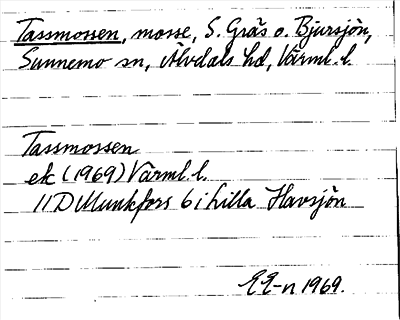 Tassmossen, mosse, S. Gräs o. Bjursjön,
Sunnemo sn, Älvdals hd, Värml. l.
Tassmossen
ek (1969) Värml. l.
11D Munkfors 6 i Lilla Havsjön
EE-n 1969.